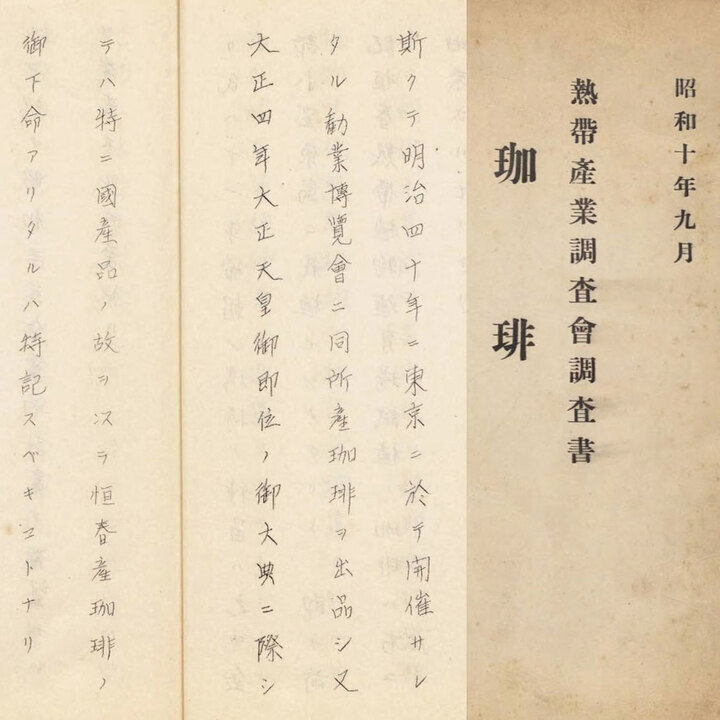 昭和十年九月
熱帶產業調查會調查書
珈琲
斯クテ明治四十年ニ東京ニ於テ開催サレ
タル勸業博覽會ニ同所產珈琲ヲ出品シ又
大正四年大正天皇御即位ノ御大典ニ際シ
テハ特ニ國產品ノ故ヲ以テ恒春產珈琲ノ
御下命アリタルハ特記スベキコトナリ